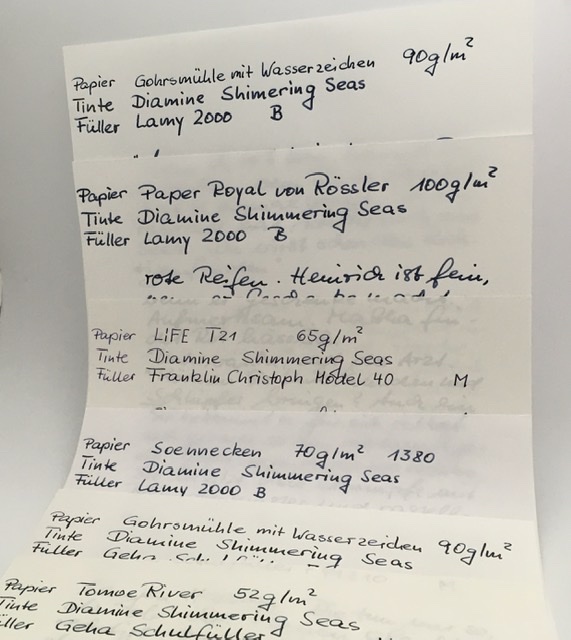 Papier Gohrsmühle mit Wasserzeichen 90g/m²
Tinte Diamine Shimering Seas
Füller Lamy 2000 B
Papier Paper Royal von Rössler 100g/m²
Tinte Diamine Shimmering Seas
Füller Lamy 2000 B
rote Reifen. Heinrich ist fein,
Papier LIFE T21 65g/m²
Tinte Diamine Shimmering Seas
Füller Franklin Christoph Model 40 M
Papier Soennecken 70g/m² 1380
Tinte Diamine Shimmering Seas
Füller Lamy 2000 B
Papier Gohrsmühle mit Wasserzeichen 90g/m²
Tinte Diamine Shimmering Seas
Füller Geha
Papier Tomoe River 52g/m²
Tinte Diamine Shimmering Seas
Füller Geha Schulfüller